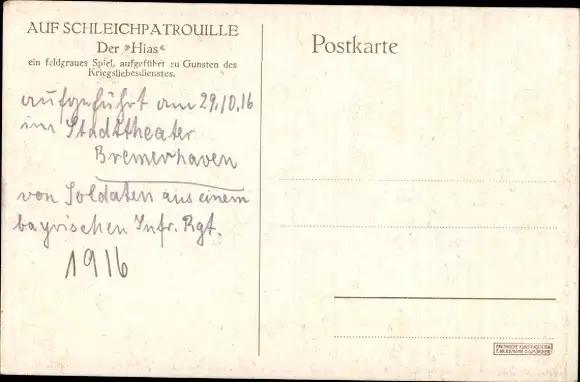 AUF SCHLEICHPATROUILLE
Der »Hias«
ein feldgraues Spiel, aufgeführt zu Gunsten des
Kriegsliebesdienstes.
aufgeführt am 29.10.16
im Stadttheater
Bremerhaven
von Soldaten aus einem
bayrischen Infr. Rgt.
1916
Postkarte